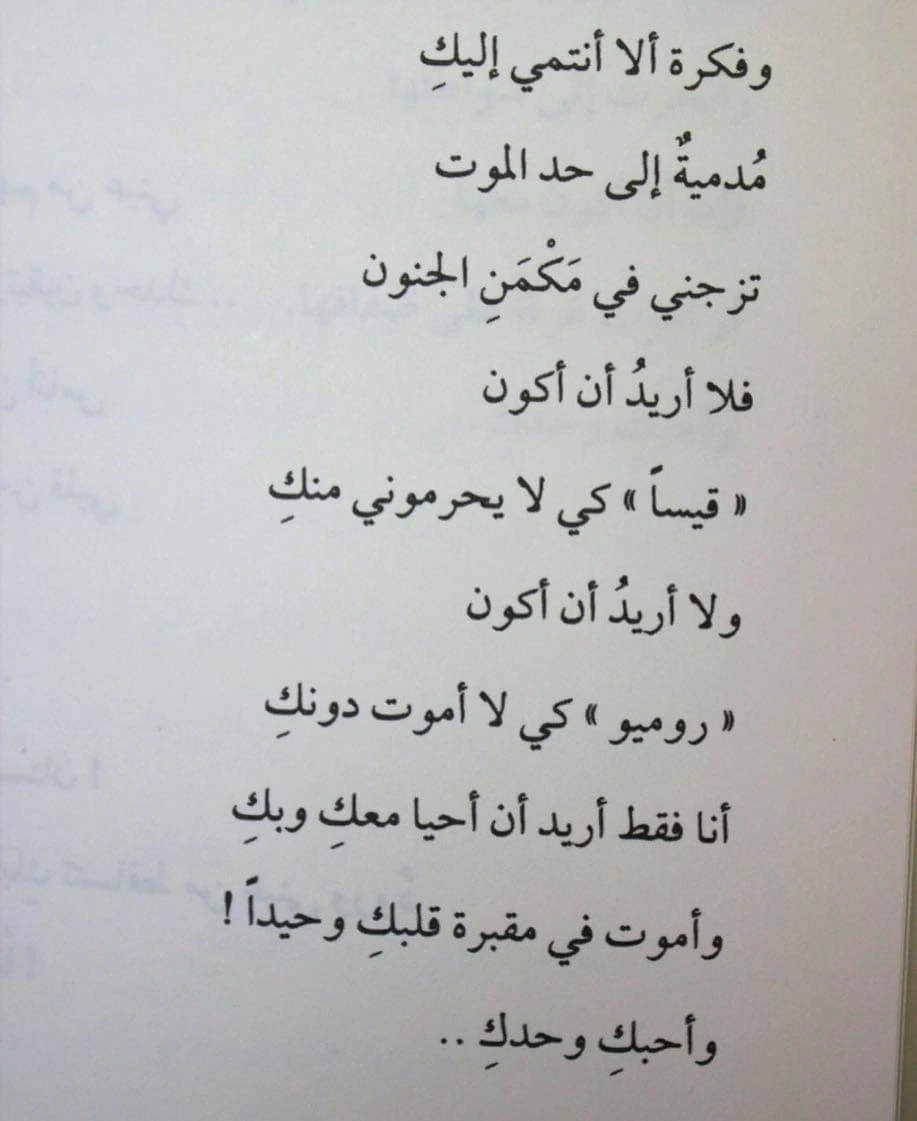 وفكرة ألا أنتمي إليكِ
مُدميةٌ إلى حد الموت
تزجني في مَكْمَنِ الجنون
فلا أريدُ أن أكون
« قيساً » كي لا يحرموني منكِ
ولا أريدُ أن أكون
« روميو » كي لا أموت دونكِ
أنا فقط أريد أن أحيا معكِ وبكِ
وأموت في مقبرة قلبكِ وحيداً !
وأحبكِ وحدكِ ..